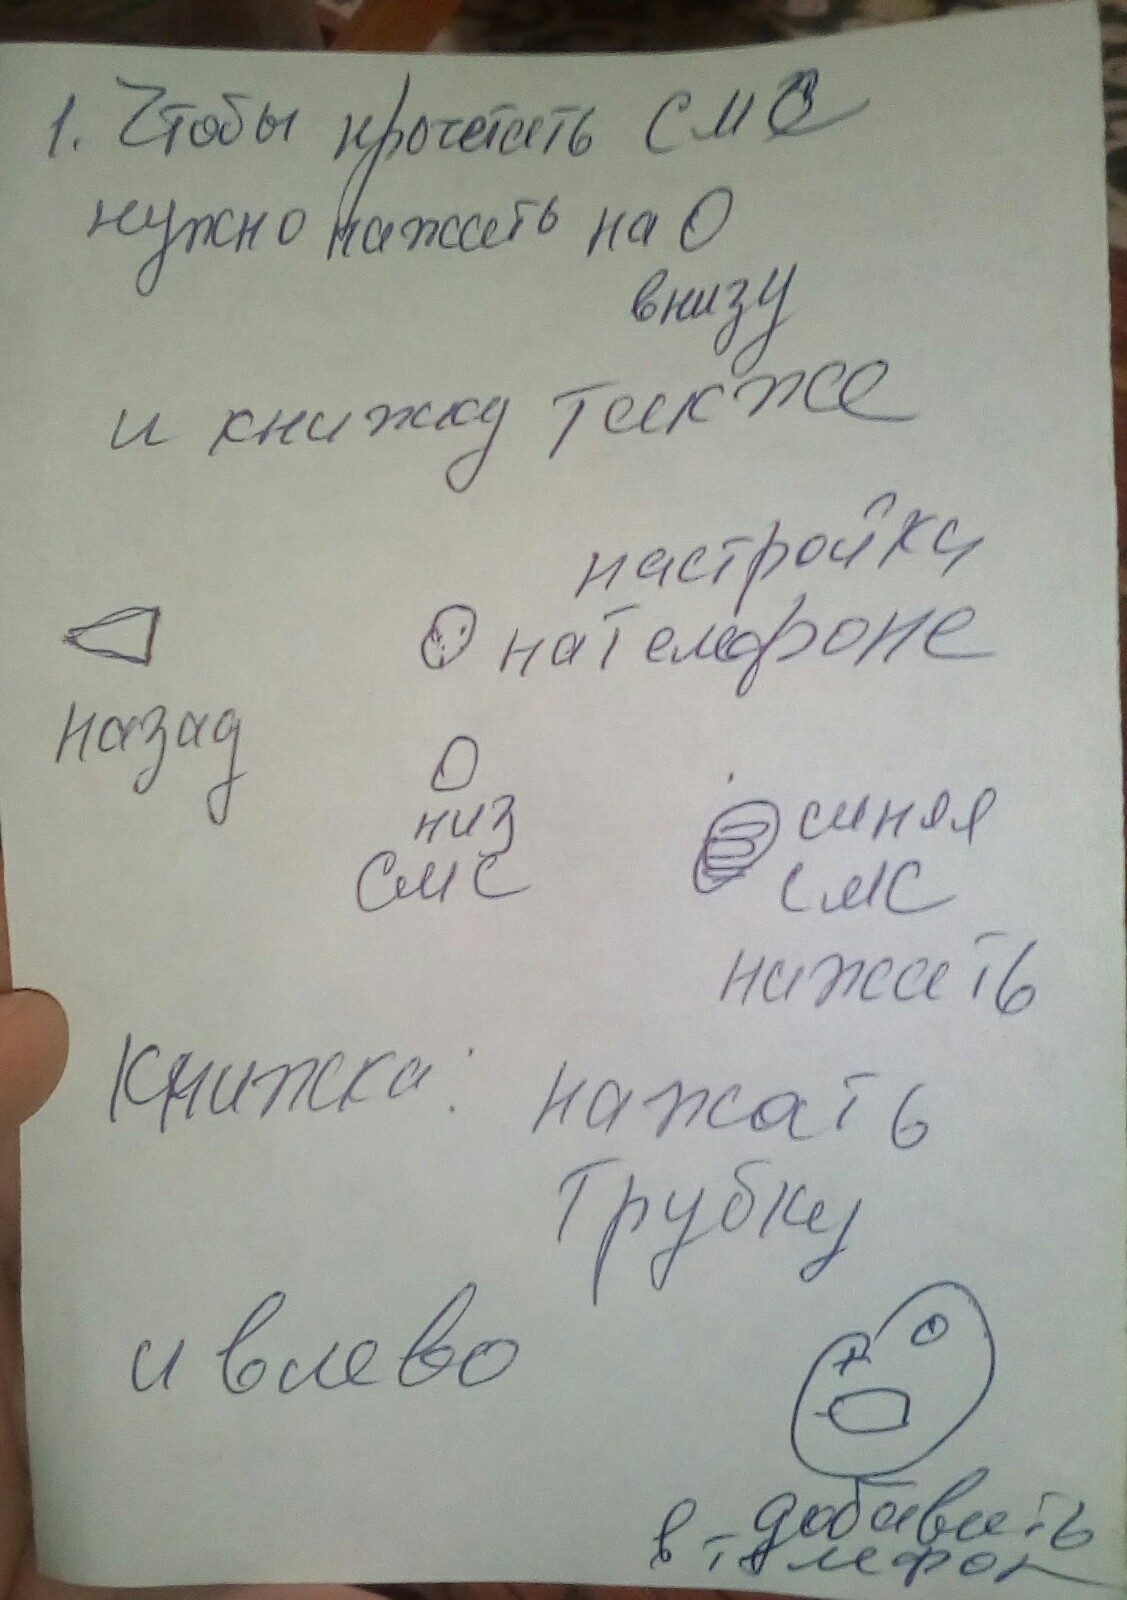 1. Чтобы прочетать СМС
нужно нажать на О
внизу
и книжку также
настройки
на телефоне
назад
О
низ
СМС
синяя
СМС
нажать
Книжка: нажать
трубку
и влево
добавить
в телефон